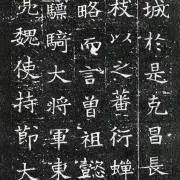 城於是克昌長
枝以之蕃衍蟬
略而言曾祖懿
驃騎大將軍東
魏使持節大